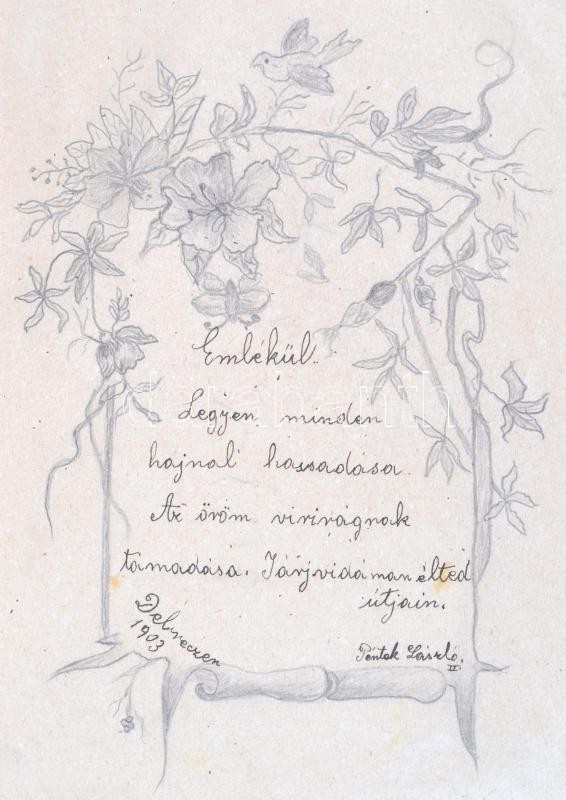 Emlékül.
Legyen minden
hajnal hassadása.
Az öröm virirágnak
támadása. Járj vidaman élted
útjain.
Debreczen
1903
Péntek László.
II.
darabanth